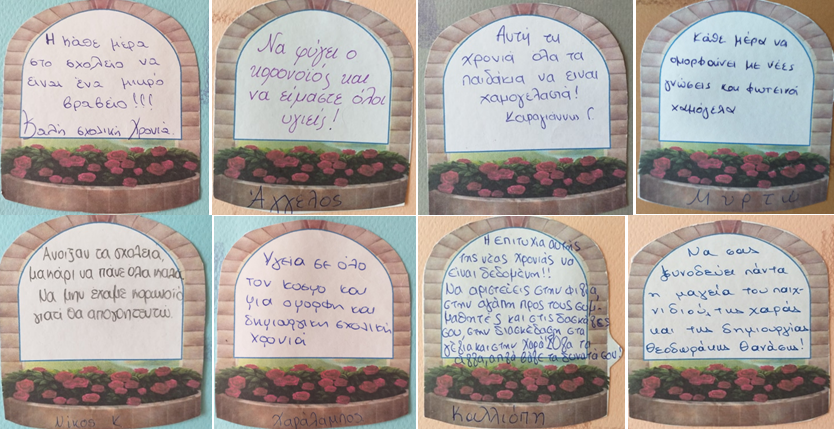 Η κάθε μέρα
στο σχολείο να
ειναι ένα μικρό
βραβείο!!!
Καλή σχολική Χρονιά.
Να φύγει ο
κορονοϊός και
να είμαστε όλοι
υγιείς!
Άγγελος
Αυτή τη
χρονιά ολα τα
παιδάκια να ειναι
χαμογελαστά!
Καραγιαννη Γ.
Κάθε μέρα να
ομορφαίνει με νέες
γνώσεις και φωτεινά
χαμόγελα
Μυρτώ
Ανοιξαν τα σχολεια,
μακάρι να πανε ολα καλα.
Να μην εχουμε κορωνοϊο
γιατί θα απογοητευτώ.
Νίκος Κ.
Υγεια σε όλο
τον κοσμο και
μια ομορφη και
δημιουργικη σχολική
χρονιά
Χαράλαμπος
Η επιτυχια αυτής
της νέας χρονιάς να
ειναι δεδομένη!!
Να αριστεύεις στην φιλία,
στην αγάπη προς τους συμ-
μαθητές και στις δασκάλες
σου, στην διασκέδαση στα
γέλια και στην χαρά! Ολα τα
αλλα, απλά βάλε τα δυνατά σου!
Καλλιόπη
Να σας
ξυνοδεύει πάντα
η μαγεία του παιχ-
νιδιού, της χαράς
και της δημιουργίας
Θεοδωράκη Θανάση!